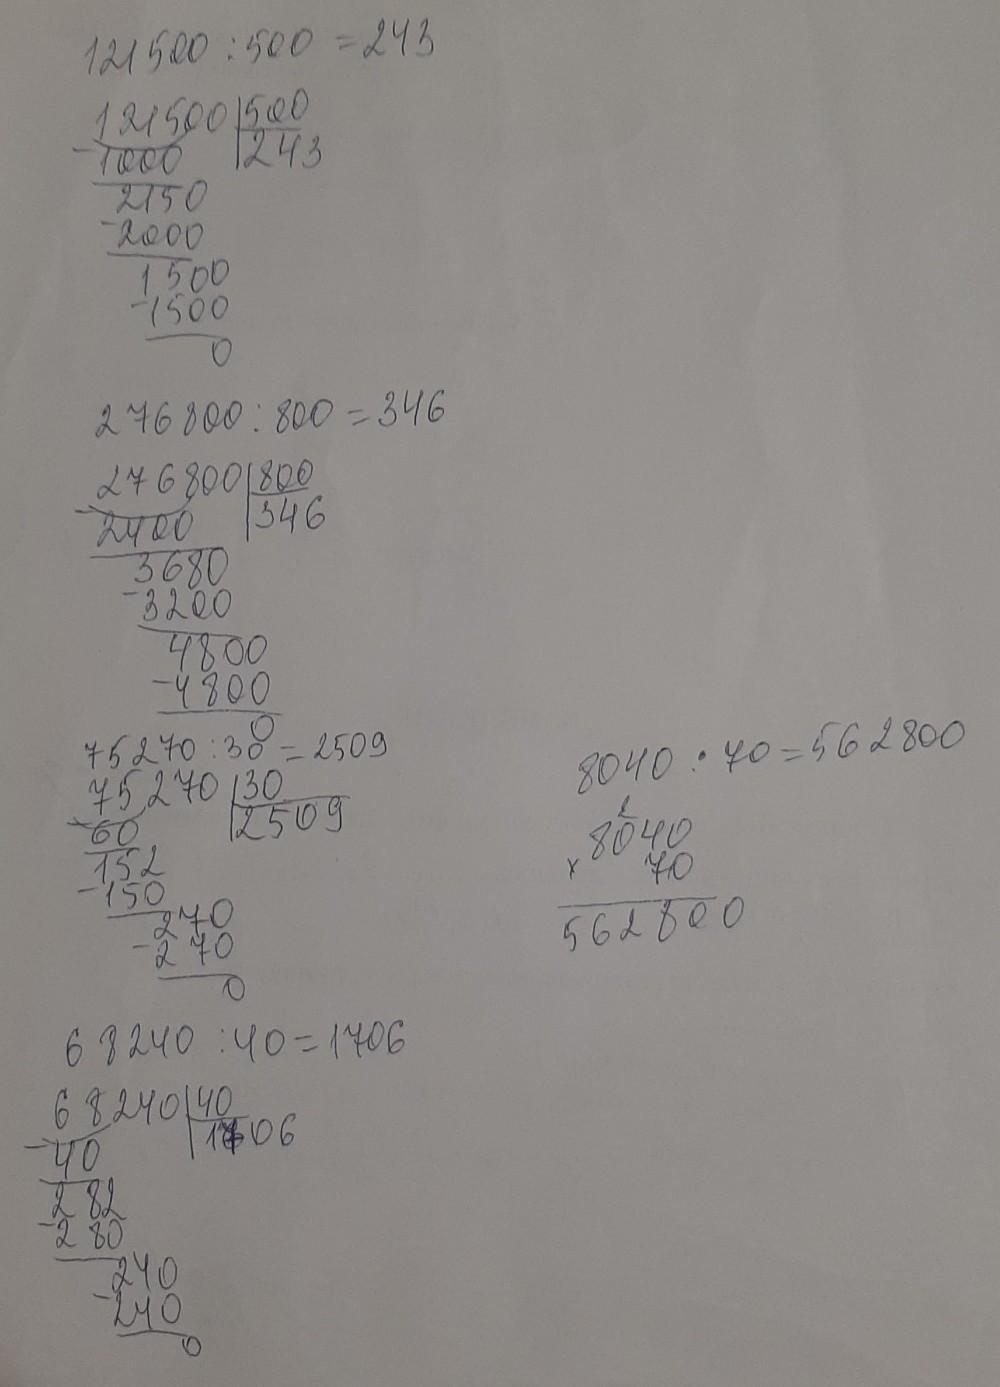 121500 : 500 = 243
121500 | 500
-1000 | 243
2150
-2000
1500
-1500
0
276800 : 800 = 346
276800 | 800
-2400 | 346
3680
-3200
4800
-4800
0
75270 : 30 = 2509
75270 | 30
-60 | 2509
152
-150
270
-270
0
68240 : 40 = 1706
68240 | 40
-40 | 1706
282
-280
240
-240
0
8040 · 70 = 562800
2
8040
x 70
562800